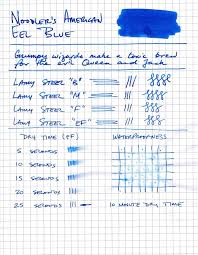 NOODLER'S AMERICAN
EEL BLUE
Grumpy wizards make a toxic brew
for the evil Queen and Jack
LAMY STEEL "B"
LAMY STEEL "M"
LAMY STEEL "F"
LAMY STEEL "EF"
DRY TIME (EF) WATERPROOFNESS
5 SECONDS
10 SECONDS
15 SECONDS
20 SECONDS
25 SECONDS 10 MINUTE DRY TIME